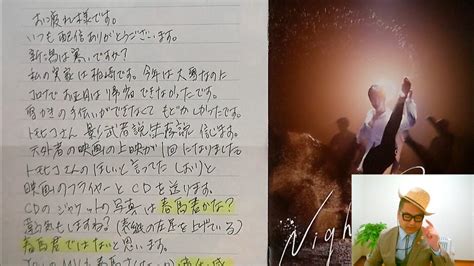 お疲れ様です。
いつも配信ありがとうございます。
新潟は寒いですか？
私の実家は柏崎です。今年は大雪なのに
コロナでお正月は帰省できなかったです。
雪かきのお手伝いができなくてもどかしかったです。
トモヒコさん 影武者説 生存説 信じます。
天外者の映画の上映が1回になりました
トモヒコさんのほしいと言ってた しおりと
映画のフライヤーとCDを送ります。
CDのジャケットの写真は春馬君かな？
違う気もしますね？(表紙の左足を上げている)
春馬君ではないと思います。
Nigh